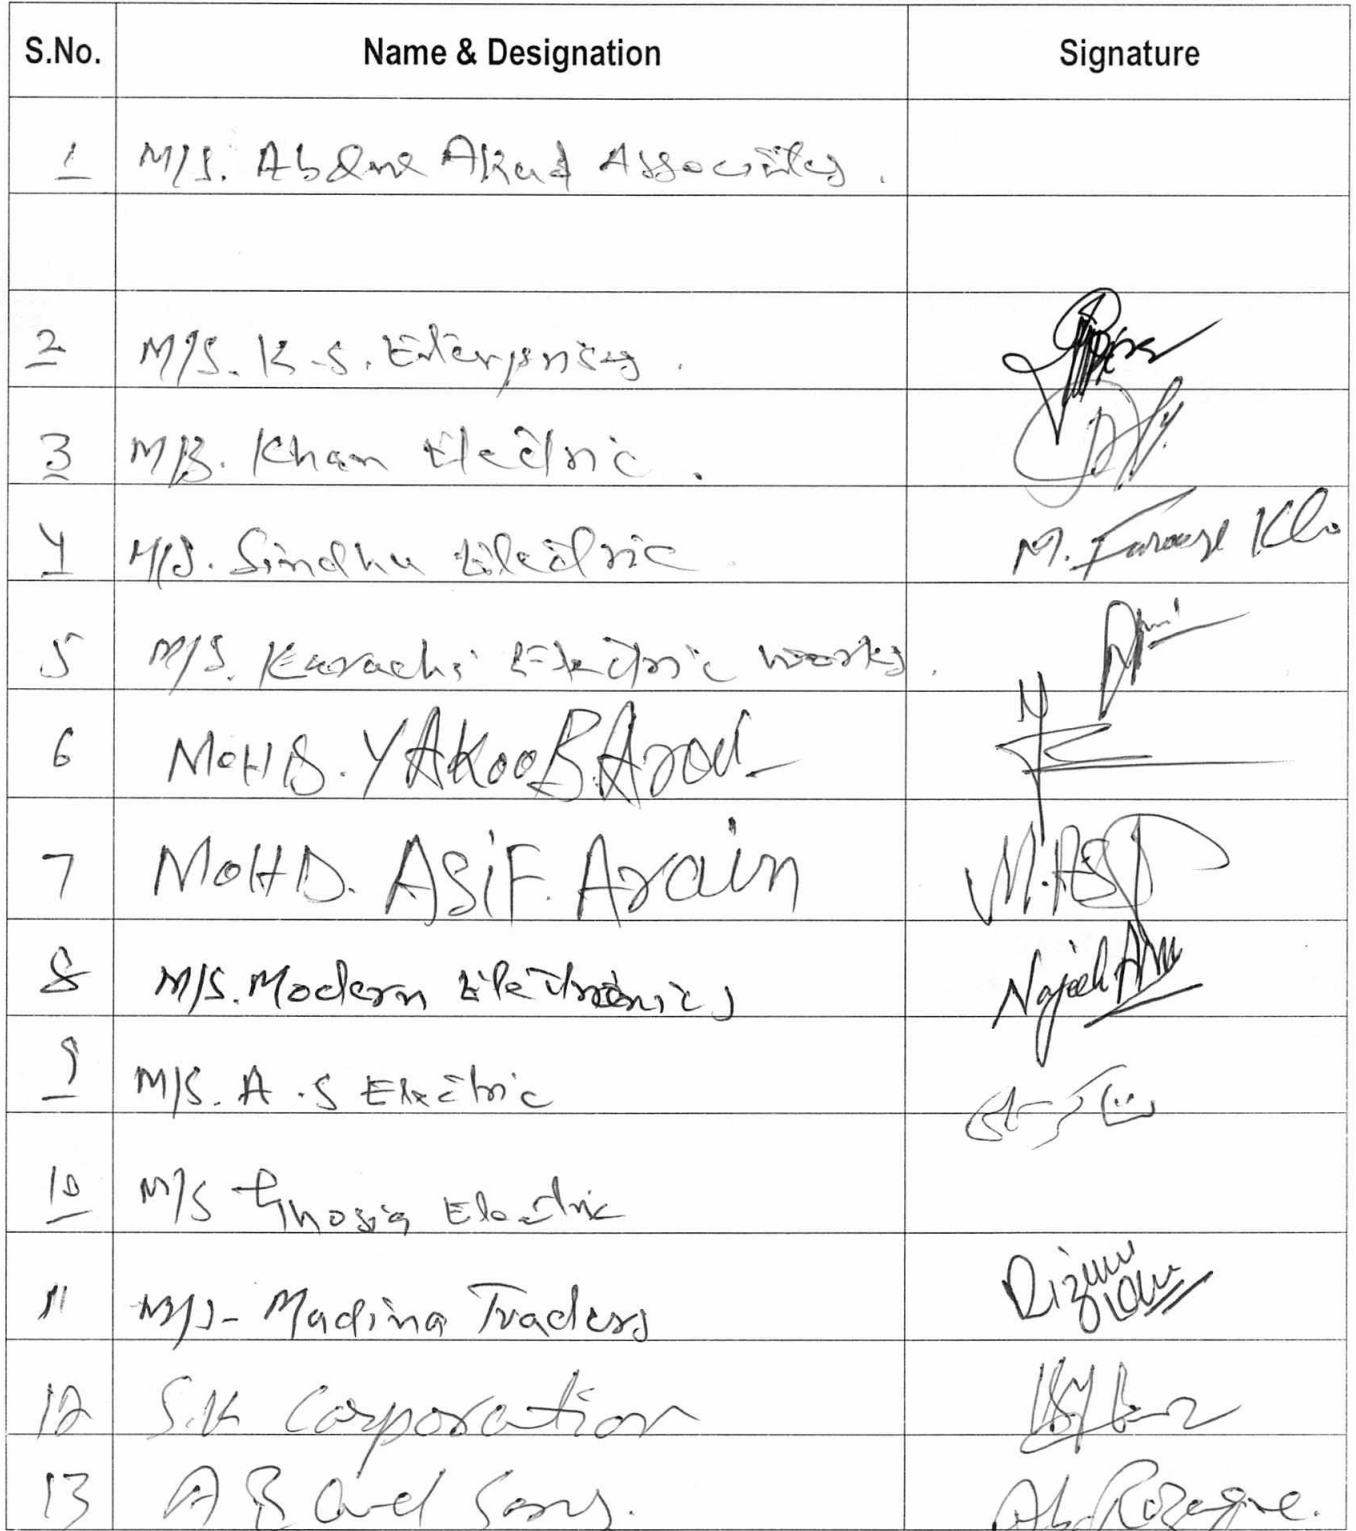 S.No. Name & Designation Signature
1 M/S. Associates.
2 M/S. K.S. Enterprises.
3 M/S. Khan Electric.
4 M/S. Sindhu Electric M. Farooq Kh
5 M/S. Karachi Electric works.
6 MOHD. YAKOOB.
7 MOHD. ASIF. Arain M. ASIF
8 M/S. Modern Electronics Najeeb
9 M/S. A.S Electric
10 M/S Ghosia Electric
11 M/S- Madina Traders
12 S.K Corporation
13 A and Sons. Ab. Razaque.